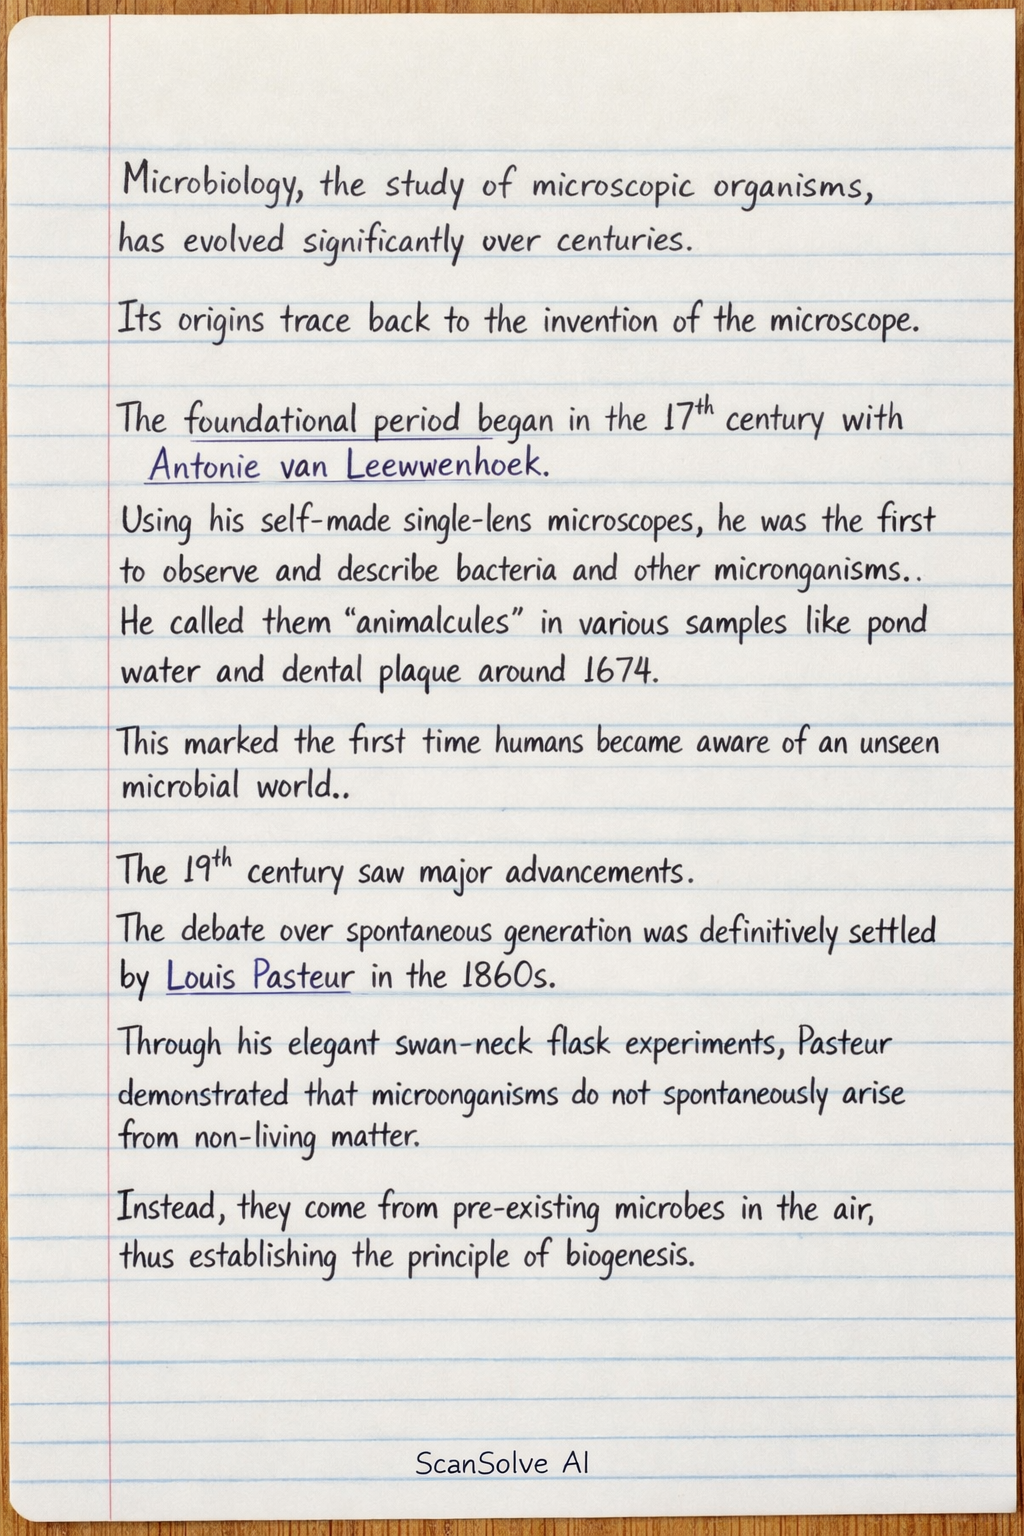 Microbiology, the study of microscopic organisms,
has evolved significantly over centuries.
Its origins trace back to the invention of the microscope.
The foundational period began in the 17th century with
Antonie van Leewwenhoek.
Using his self-made single-lens microscopes, he was the first
to observe and describe bacteria and other micronganisms..
He called them “animalcules” in various samples like pond
water and dental plaque around 1674.
This marked the first time humans became aware of an unseen
microbial world..
The 19th century saw major advancements.
The debate over spontaneous generation was definitively settled
by Louis Pasteur in the 1860s.
Through his elegant swan-neck flask experiments, Pasteur
demonstrated that microonganisms do not spontaneously arise
from non-living matter.
Instead, they come from pre-existing microbes in the air,
thus establishing the principle of biogenesis.
ScanSolve AI